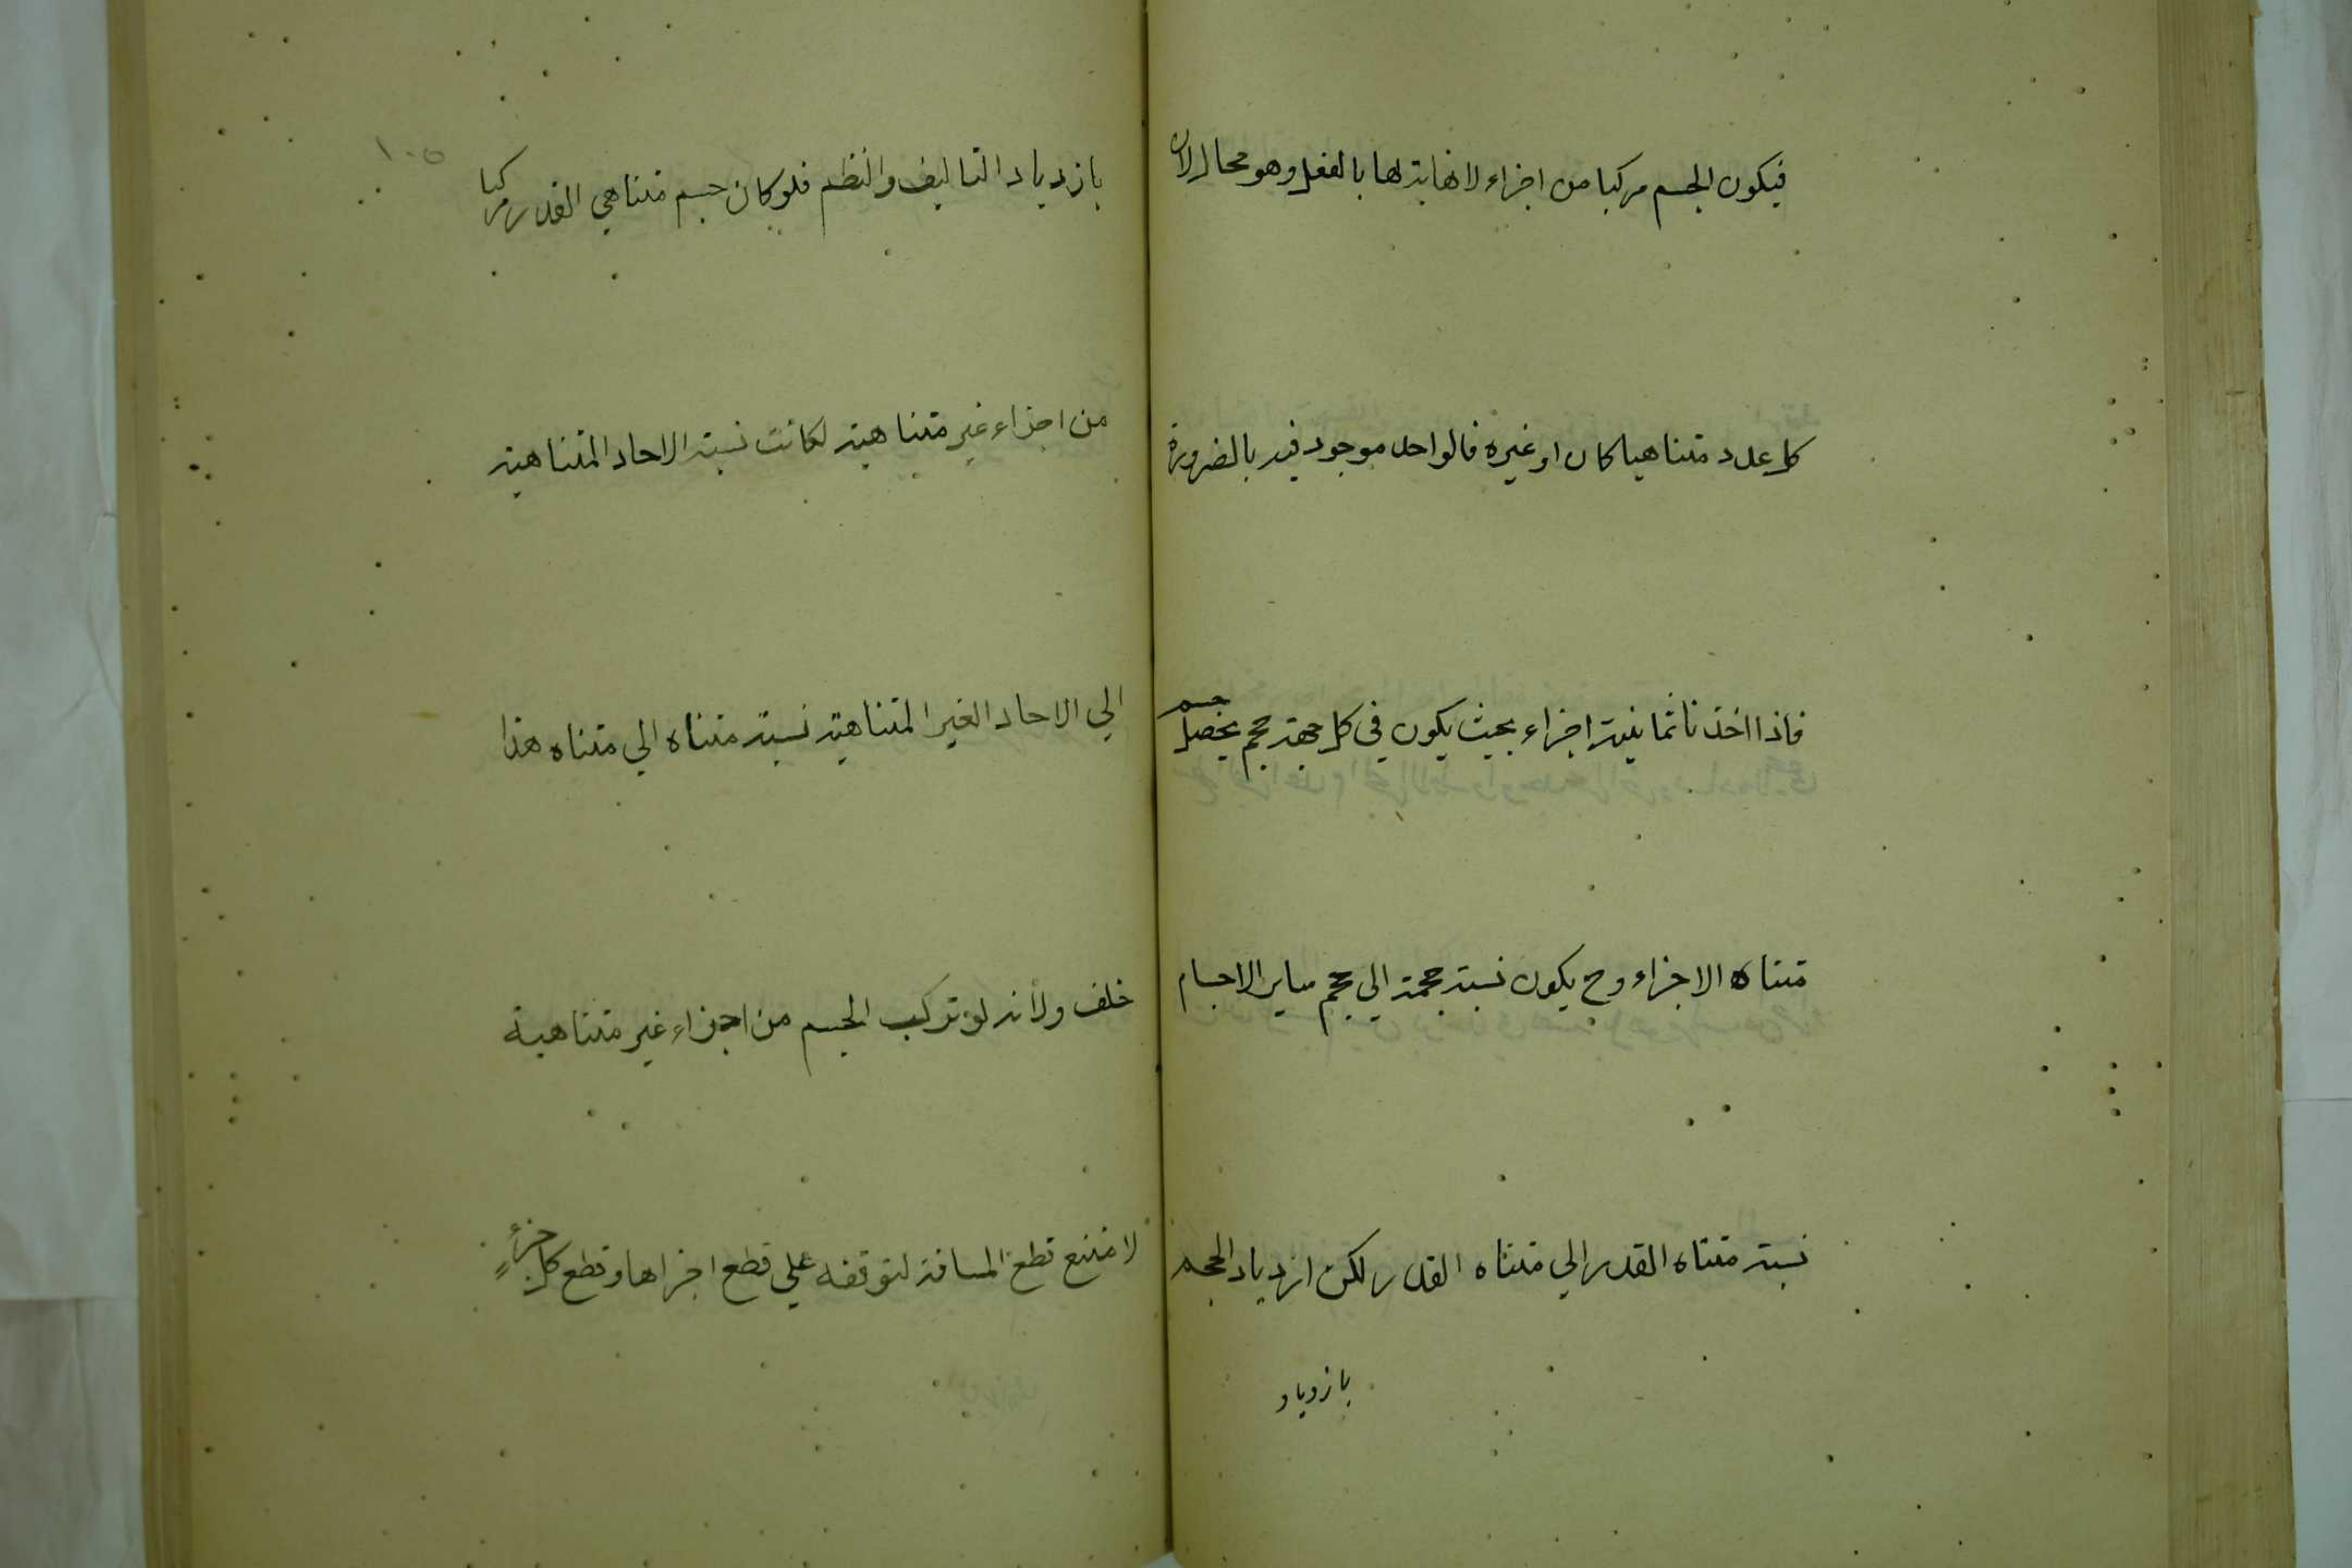 فيكون الجسم مركبا من اجزاء لا نهاية لها بالفعل وهو محال لان
كل عدد متناهيا كان او غيره فالواحد موجود فيه بالضرورة
فاذا اخذنا ثمانية اجزاء بحيث يكون في كل جهة حجم يحصل جسم
متناه الاجزاء وح يكون نسبة حجمة الي حجم ساير الاجسام
نسبة متناه القدر الي متناه القدر لكن ازدياد الحجم
بازدياد
١٠٥
بازدياد التاليف والنظم فلو كان جسم متناهي القدر مركبا
من اجزاء غير متناهية لكانت نسبة الاحاد المتناهية
الي الاحاد الغير المتناهية نسبة متناه الي متناه هذا
خلف ولانه لو تركب الجسم من اجزاء غير متناهية
لامتنع قطع المسافة لتوقفه علي قطع اجزاها وقطع كل جزءٍ